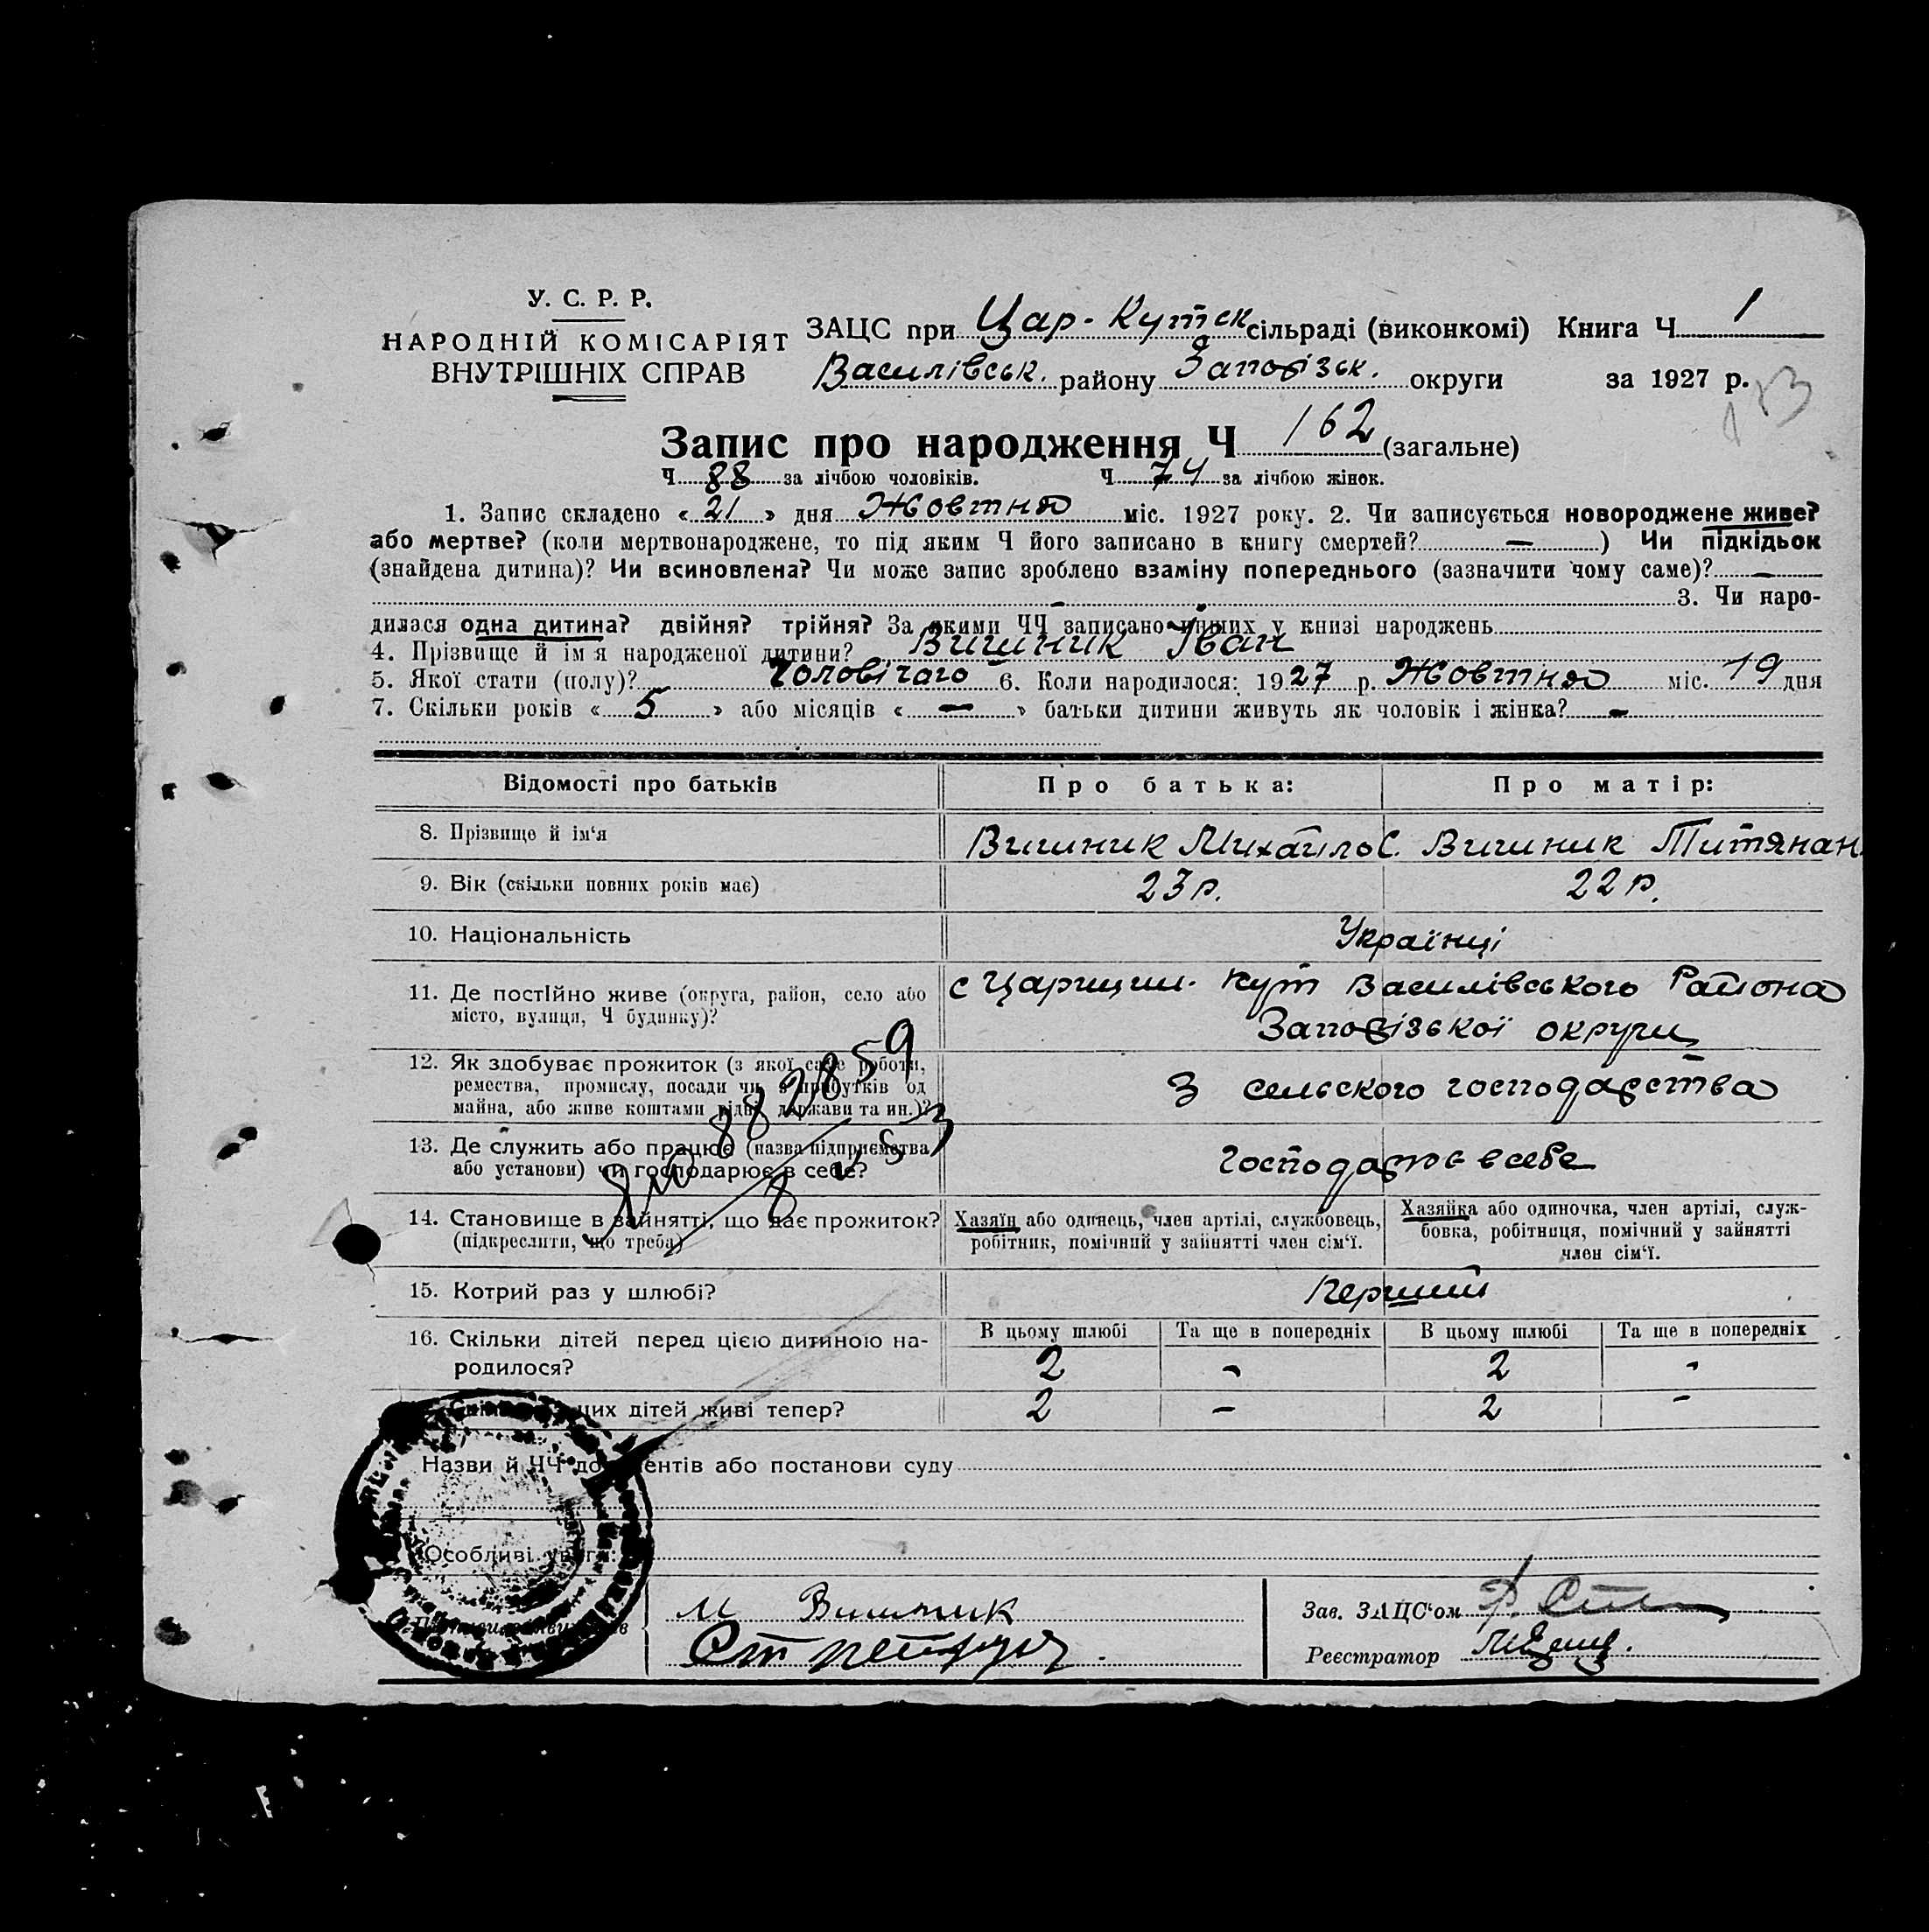 У. С. Р. Р.
НАРОДНІЙ КОМІСАРІЯТ
ВНУТРІШНІХ СПРАВ
ЗАЦС при Цар-Кутск сільраді (виконкомі) Книга Ч 1
Василівськ. району Запорізьк. округи за 1927 р.
Запис про народження Ч 162 (загальне)
Ч 88 за лічбою чоловіків. Ч 74 за лічбою жінок.
1. Запис складено «21» дня Жовтня міс. 1927 року. 2. Чи записується новороджене живе?
або мертве? (коли мертвонароджене, то під яким Ч його записано в книгу смертей? —) Чи підкідьок
(знайдена дитина)? Чи всиновлена? Чи може запис зроблено взаміну попереднього (зазначити чому саме)? —
— 3. Чи наро-
дилася одна дитина? двійня? трійня? За якими ЧЧ записано инших у книзі народжень
4. Прізвище й ім'я народженої дитини? Вишник Іван
5. Якої стати (полу)? Чоловічаго 6. Коли народилося: 1927 р. Жовтня міс. 19 дня
7. Скільки років «5» або місяців «—» батьки дитини живуть як чоловік і жінка? —
Відомості про батьків Про батька: Про матір:
8. Прізвище й ім'я Вишник Михайло С. Вишник Титянан
9. Вік (скільки повних років має) 23 р. 22 р.
10. Національність Українці
11. Де постійно живе (округа, район, село або с Царицин. Кут Василівського Района
місто, вулиця, Ч будинку)? Запорізької округи
12. Як здобуває прожиток (з якої саме роботи,
ремества, промислу, посади чи з прибутків од З сельского господарства
майна, або живе коштами рідні, держави та ин.)?
13. Де служить або працює (назва підприємства
або установи) чи господарює в себе? Господарює в себе
14. Становище в зайнятті, що дає прожиток? Хазяїн або одинець, член артілі, службовець, Хазяйка або одиночка, член артілі, служ-
(підкреслити, що треба) робітник, помічний у зайнятті член сім'ї. бовка, робітниця, помічний у зайнятті
член сім'ї.
15. Котрий раз у шлюбі? Перший
16. Скільки дітей перед цією дитиною на- В цьому шлюбі Та ще в попередніх В цьому шлюбі Та ще в попередніх
родилося? 2 - 2 -
цих дітей живі тепер? 2 - 2 -
Назви й ЧЧ документів або постанови суду
Особливі уваги:
М Вишник Зав. ЗАЦС'ом
Реєстратор